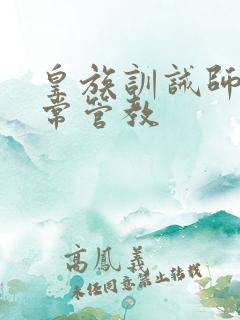 皇族訓誡師
常管教
高鳳義
未经同意禁止转载